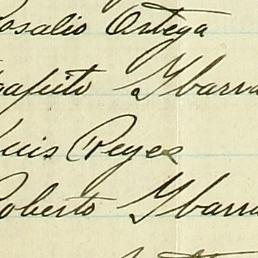 Rosalio Ortega
Agapito Ybarra
Luis Reyes
Roberto Ybarra